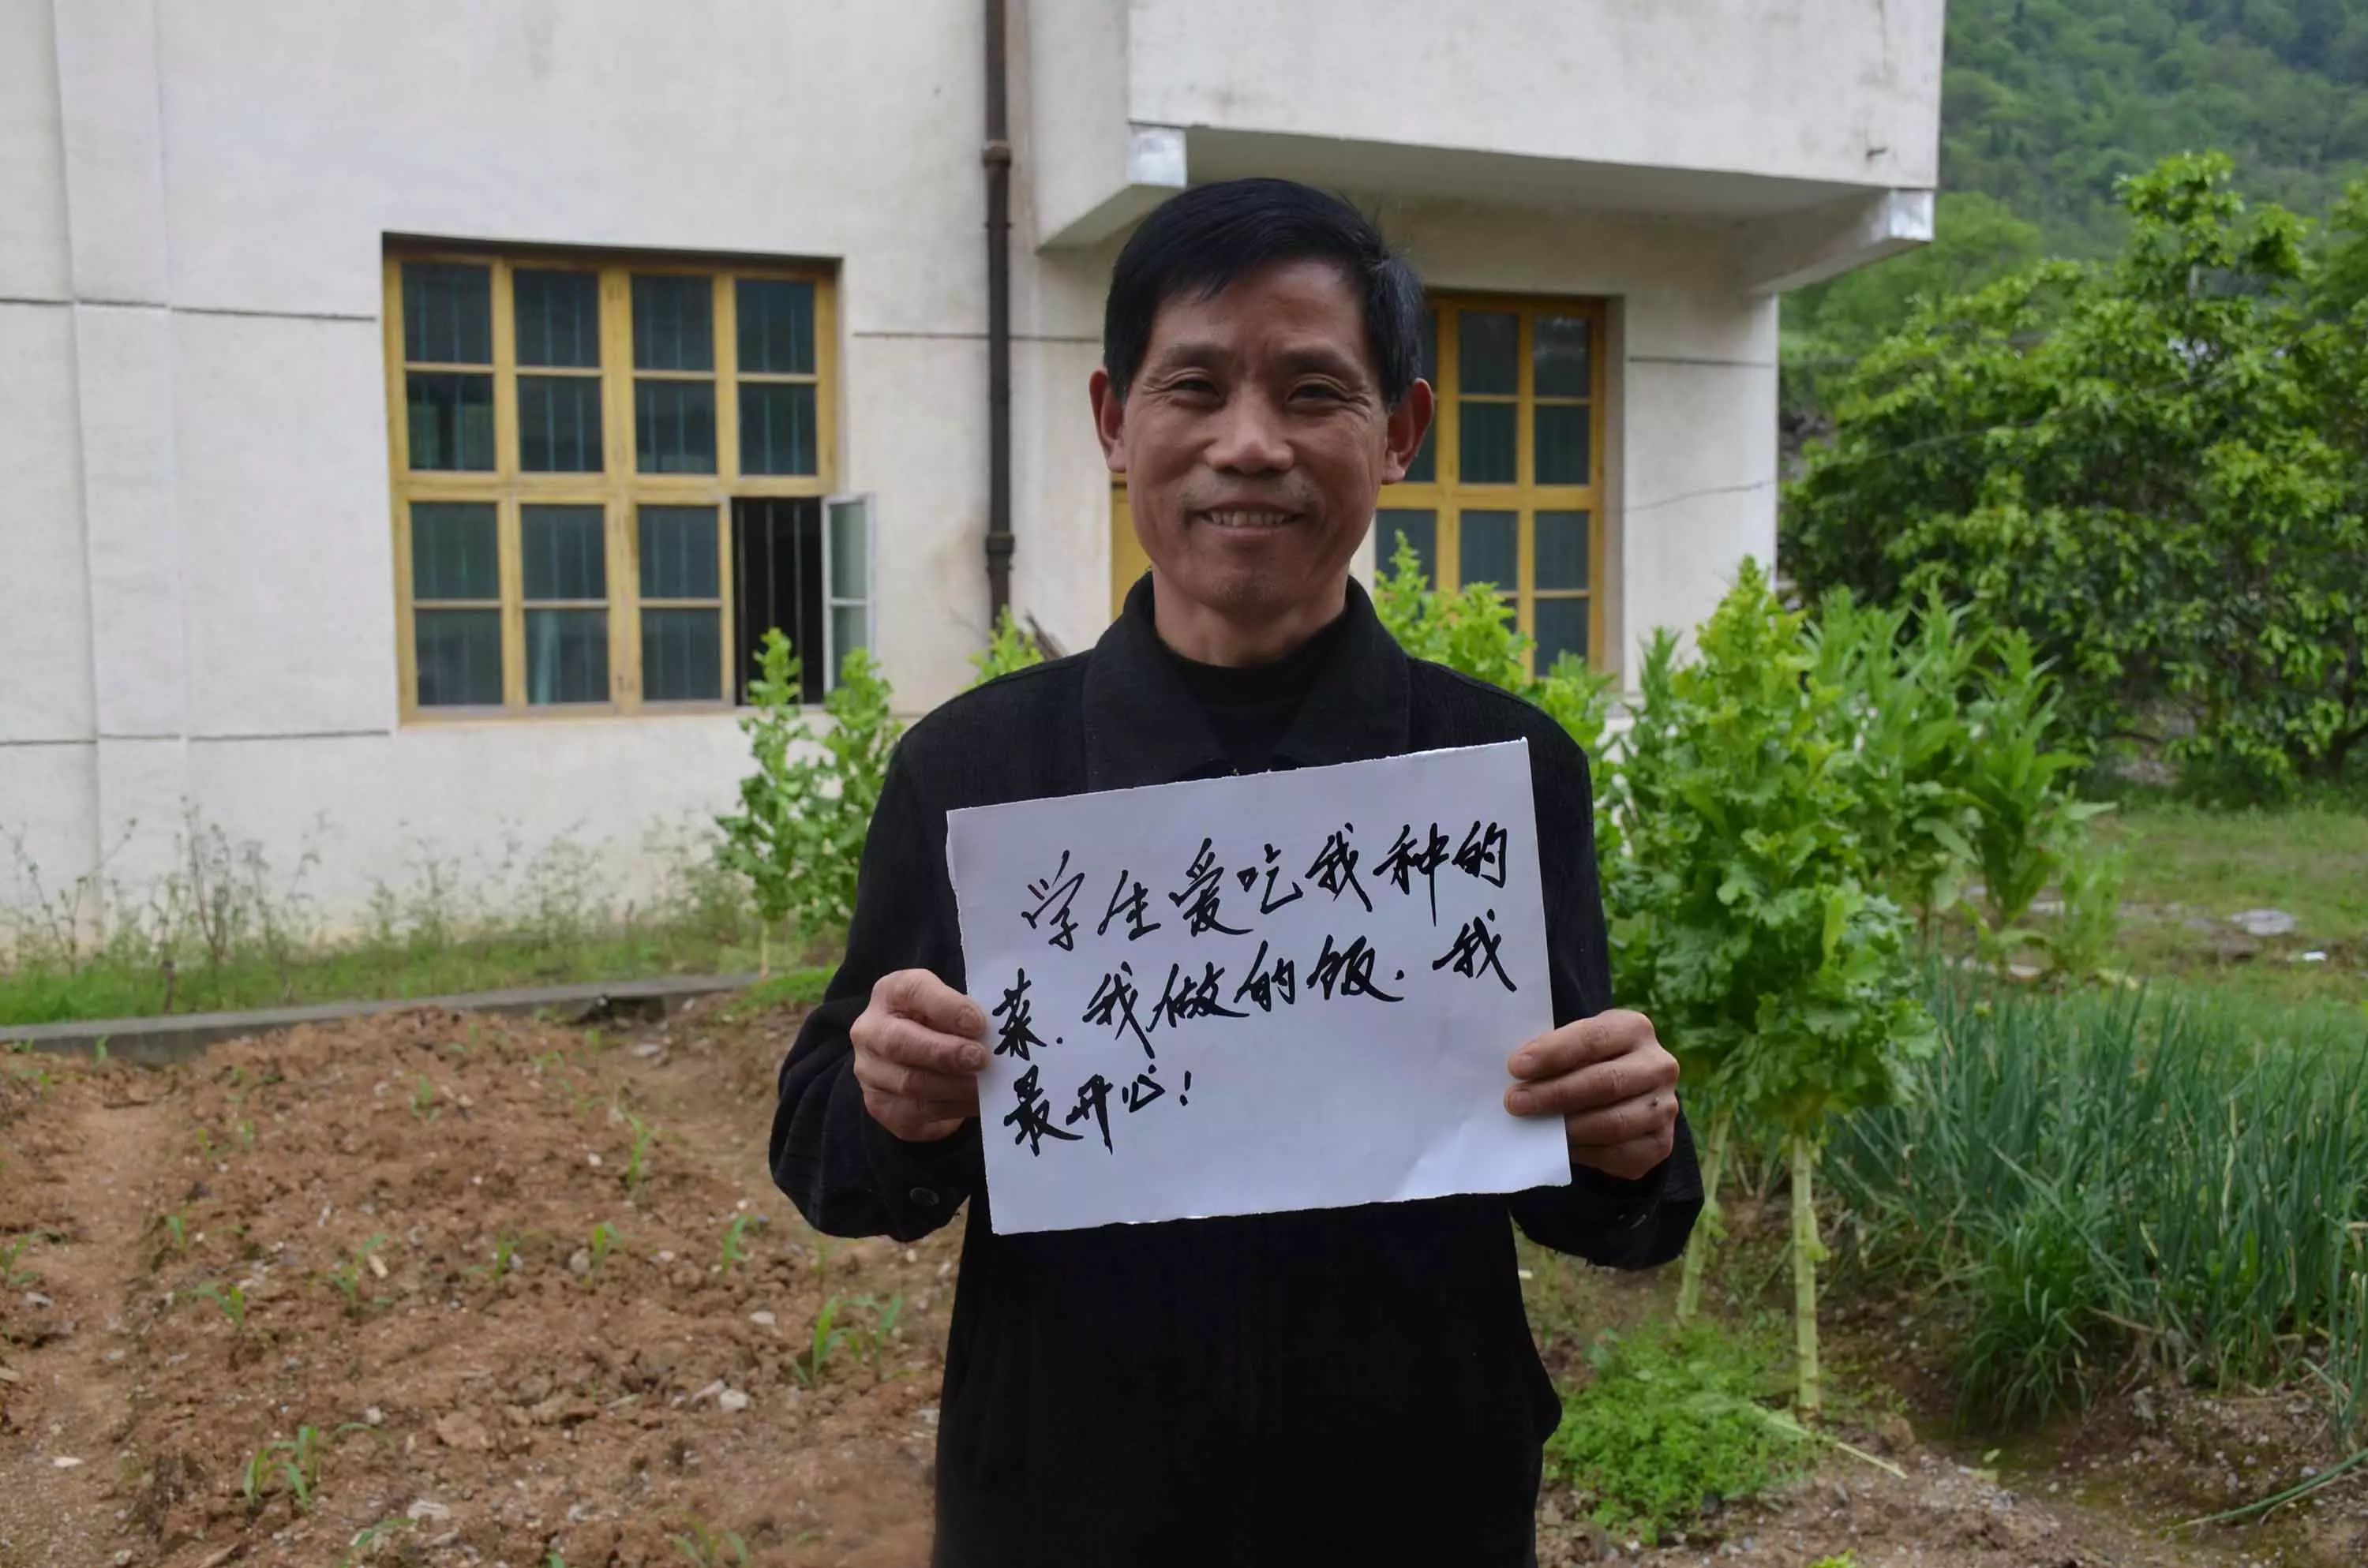 学生爱吃我种的
菜.我做的饭.我
最开心!